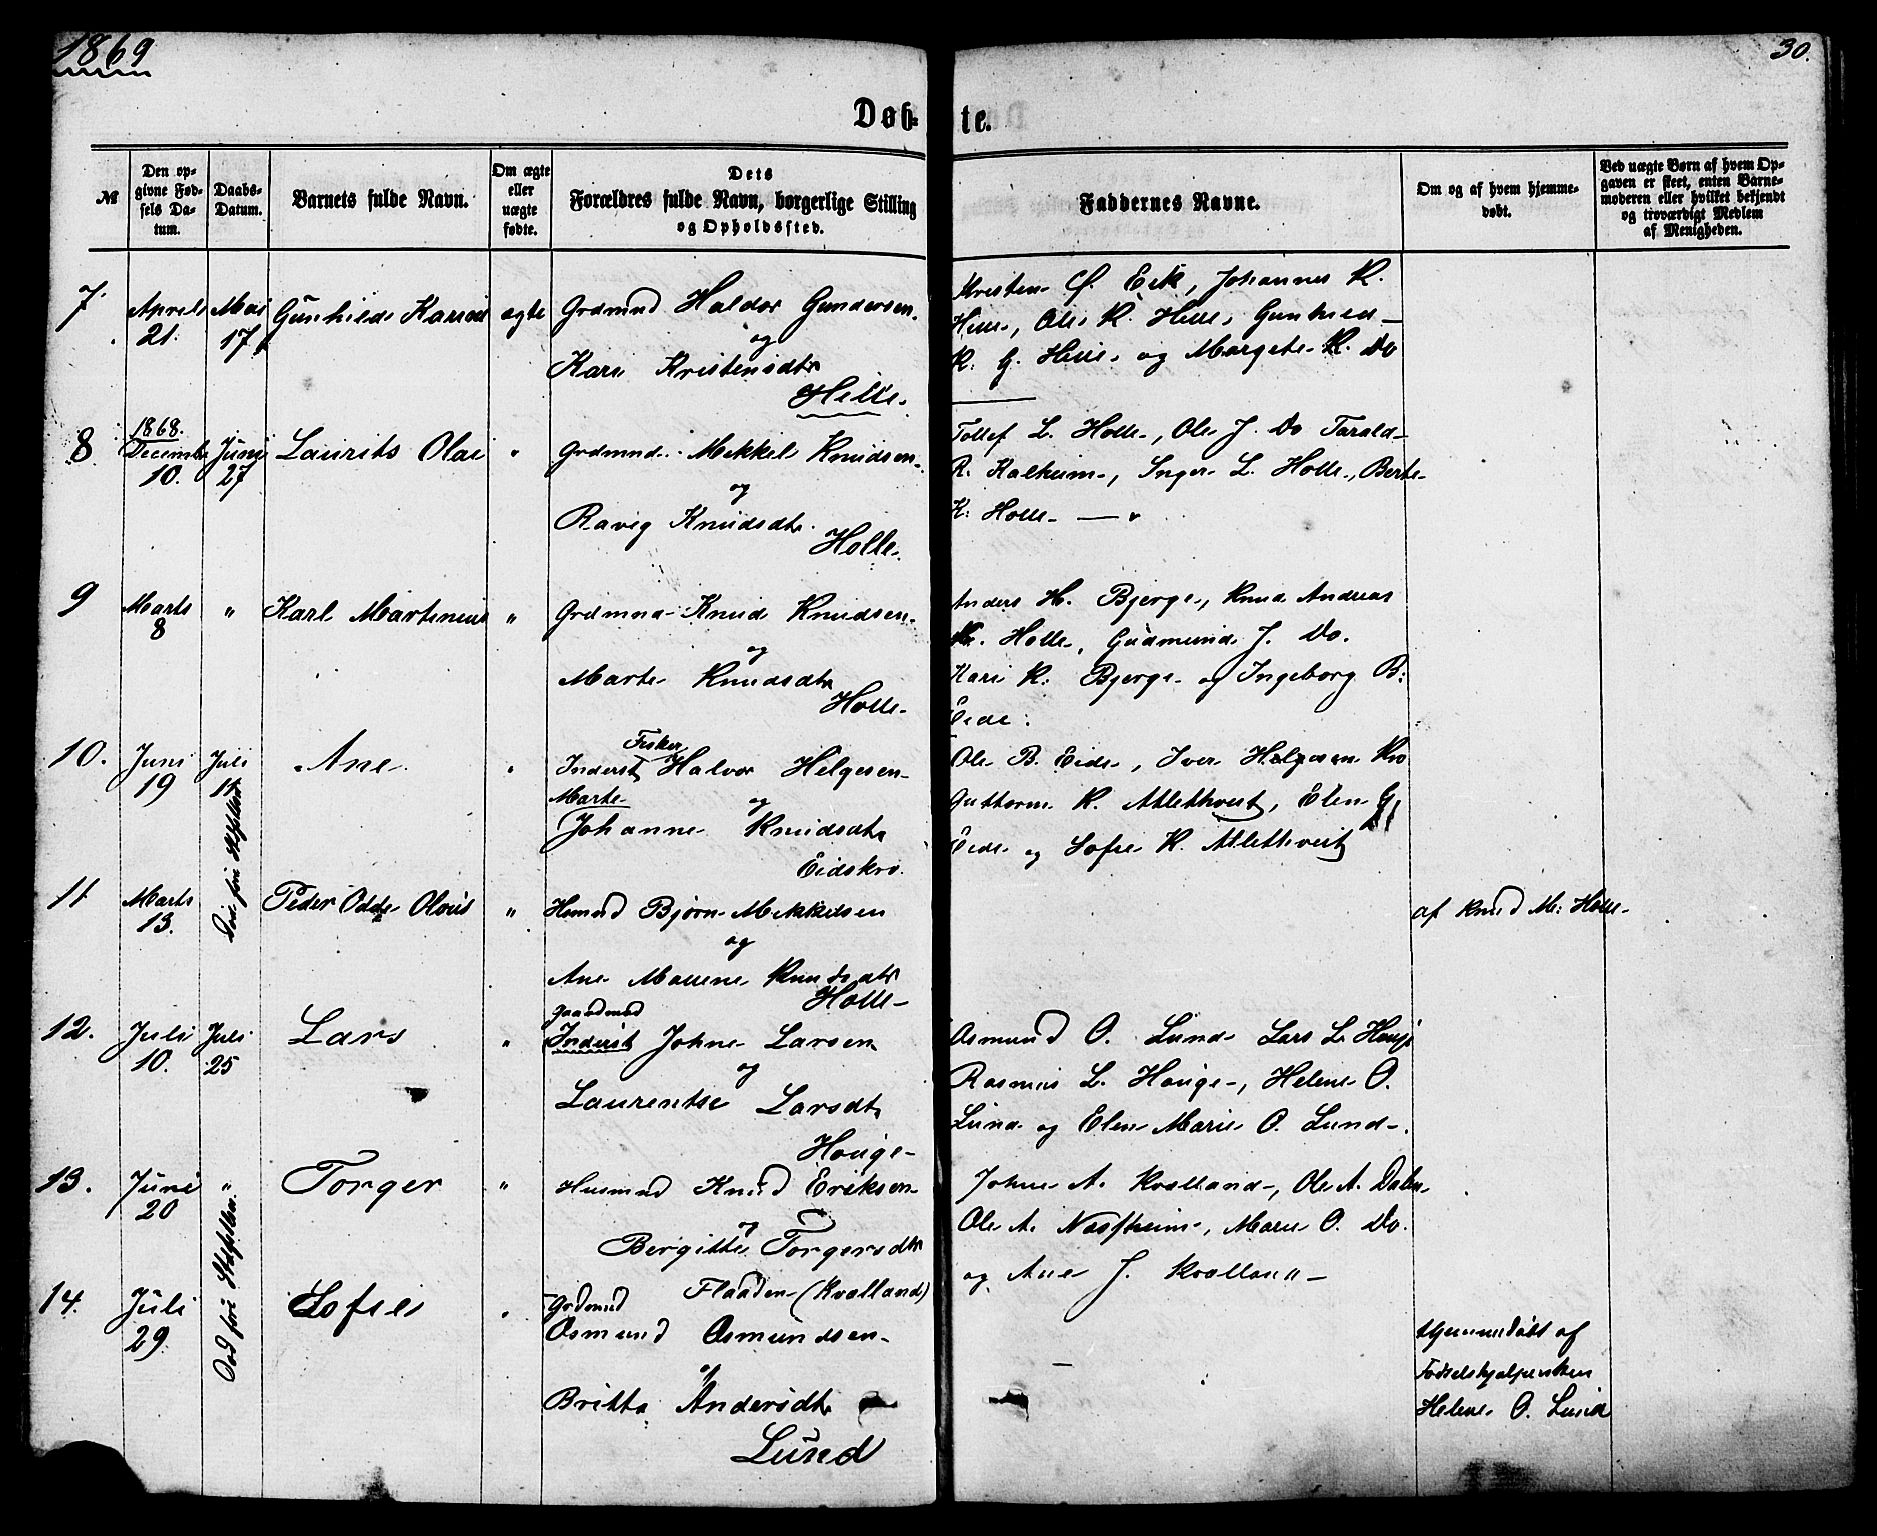 1869
30.
Døb-te.
№
Den opgivne Fødsels Datum.
Daabs-Datum.
Barnets fulde Navn.
Om ægte eller uægte fødte.
Dets Forældres fulde Navn, borgerlige Stilling og Opholdssted.
Faddernes Navne.
Om og af hvem hjemmedøbt.
Ved uægte Børn af hvem Opgaven er skeet, enten Barnemoderen eller hvilket bekjendt og troværdigt Medlem af Menigheden.
7. April 21. Mai 17. Gunhilde ægte Grdmnd Haldor Gundersen
og
Kari Kristensdtr
Helle.
Kristen Eik, Johannes K.
Helle, Ole K. Helle, Gunhild
K. G. Helle og Margete K. Do
8 1868. Decembr 10. Juni 27 Laurits Olai " Grdmnd Mikkel Knudsen
og
Ravig Knudsdtr.
Holle.
Tollef L. Holle, Ole J. Do Tarald
R. Kalheim, Inger L. Holle, Berte
K. Holle
9 Marts 8 " Karl Martinius " Grdmnd Knud Knudsen
og
Marte Knudsdtr
Holle
Anders H. Bjerge, Knud Andreas
Holle, Gudmund J. Do.
Kari K. Bjerge og Ingeborg B:
Eide.
10. Juni 19 Juli 11 Ane " Inderst Fisker Halvor Helgesen
Marte og
Johanne Knudsdtr
Eidskro.
Ole B. Eide, Iver Helgesen Kro
Guttorm K. Atlethveit, Elen G
Eide og Sofie K. Atlethveit
11 Marts 13. Død før Peder Odde Olaus " Husmnd Bjørn Mikkelsen
og
Ane Malene Knudsdtr
Holle
af Knud M: Holle
12. Juli 10. Juli 25 Lars " Gaardmnd
Inderst Johne Larsen
og
Laurentse Larsdtr
Houge
Osmund O. Lund Lars L. Houge
Rasmus L. Houge, Helene O.
Lund og Elen Marie O. Lund.
13. Juni 20 " Torger " Husmnd Knud Eriksen
og
Bergitte Torgersdtr
Flaaden (Kvalland)
Johne A. Kvalland, Ole A.
Ole A. Nasheim, Marie O. Do.
og Ane J. Kvalland
14. Juli 29 Død før Sofie " Grdmnd
Osmund Osmundsen
og
Britta Andersdtr
Lund
Hjemmedøbt af
Fødselshjælpersken
Helene O. Lund